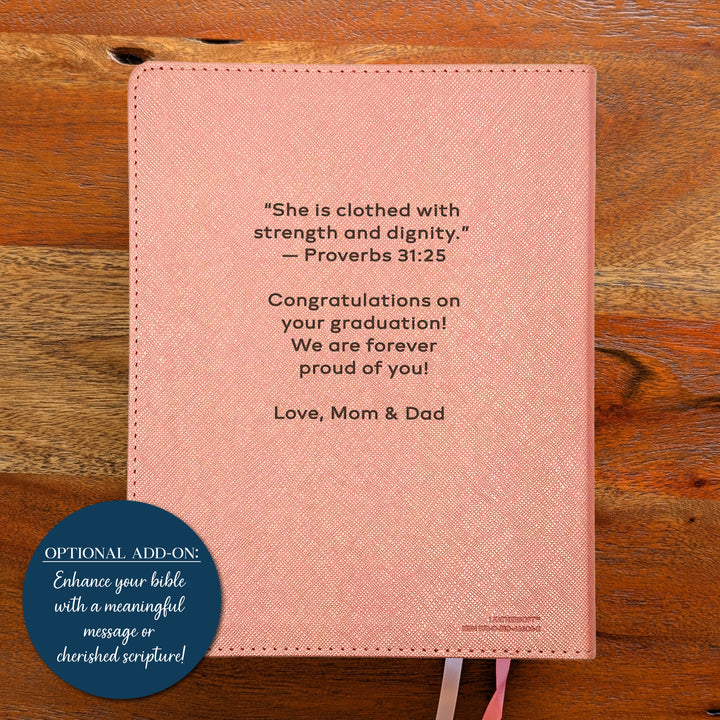 “She is clothed with
strength and dignity.”
— Proverbs 31:25
Congratulations on
your graduation!
We are forever
proud of you!
Love, Mom & Dad
OPTIONAL ADD-ON:
Enhance your bible
with a meaningful
message or
cherished scripture!
LEATHERSOFT™